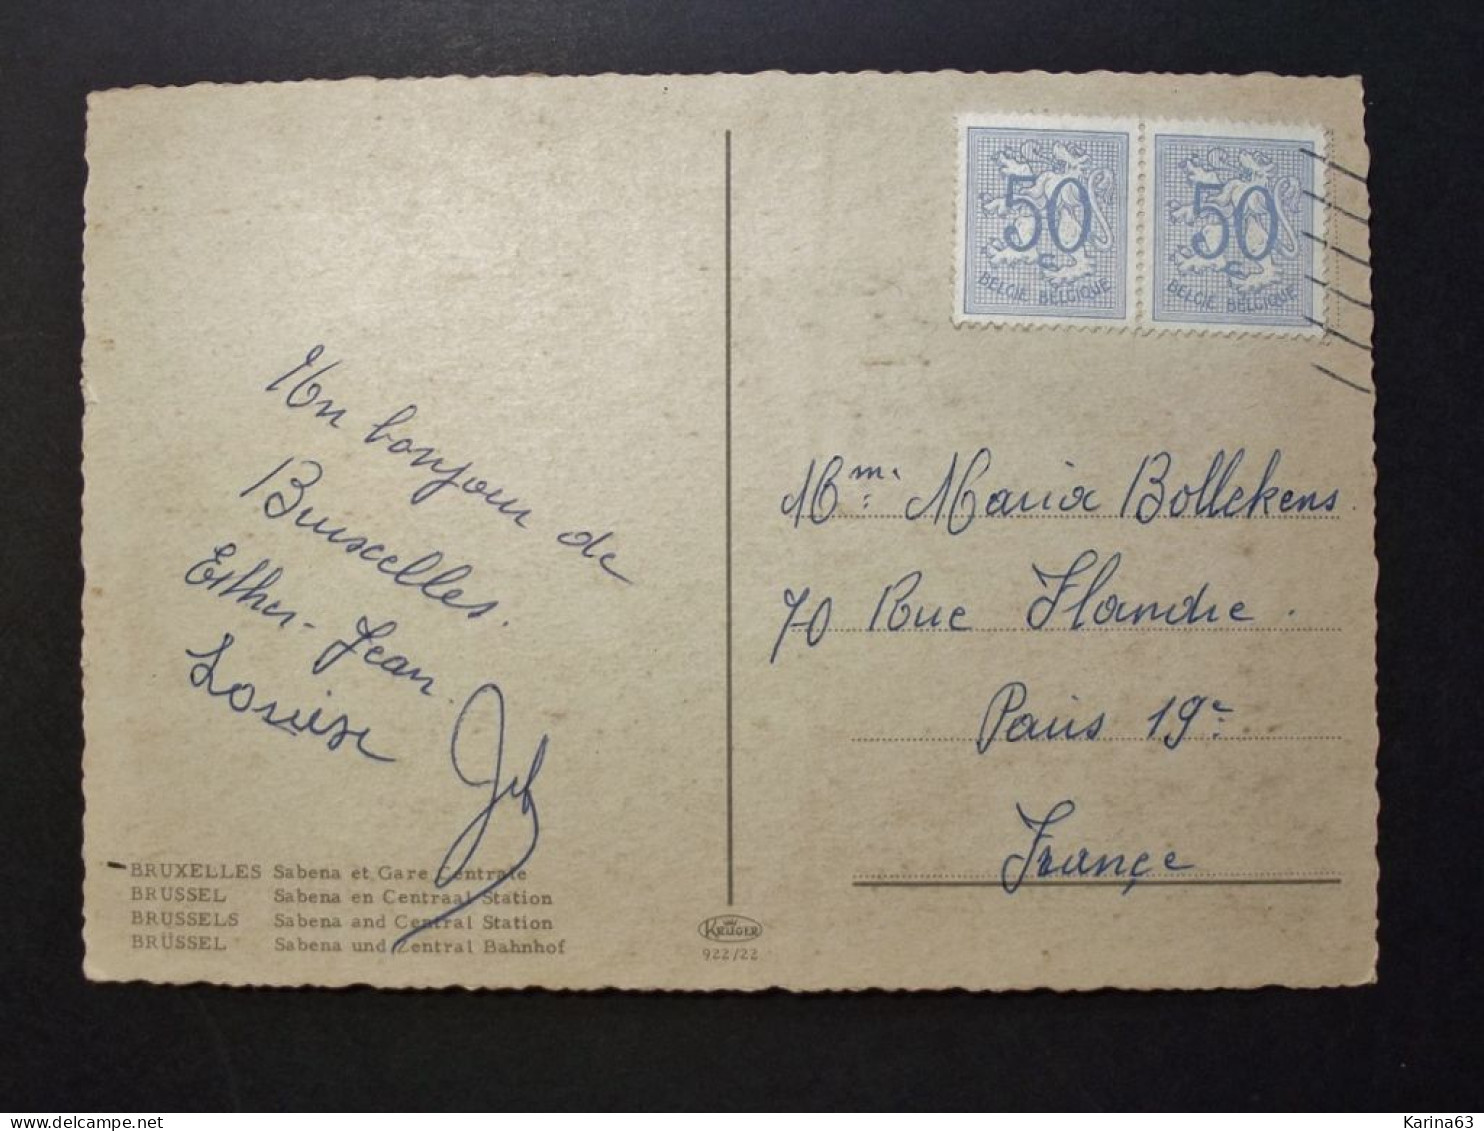 50 50
BELGIE BELGIQUE BELGIE BELGIQUE
Un bonjour de
Bruxelles.
Esther - Jean.
Louise
Mme. Maria Bollekens.
70 Rue Flandre.
Paris 19e
France
BRUXELLES Sabena et Gare Centrale
BRUSSEL Sabena en Centraal Station
BRUSSELS Sabena and Central Station
BRÜSSEL Sabena und Zentral Bahnhof
KRÜGER
922/22
Karina63